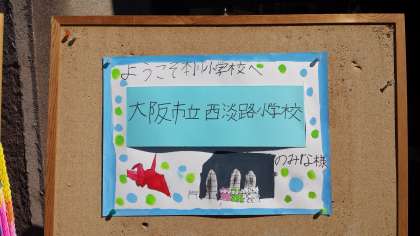 ようこそ本川小学校へ
大阪市立西淡路小学校
のみな様